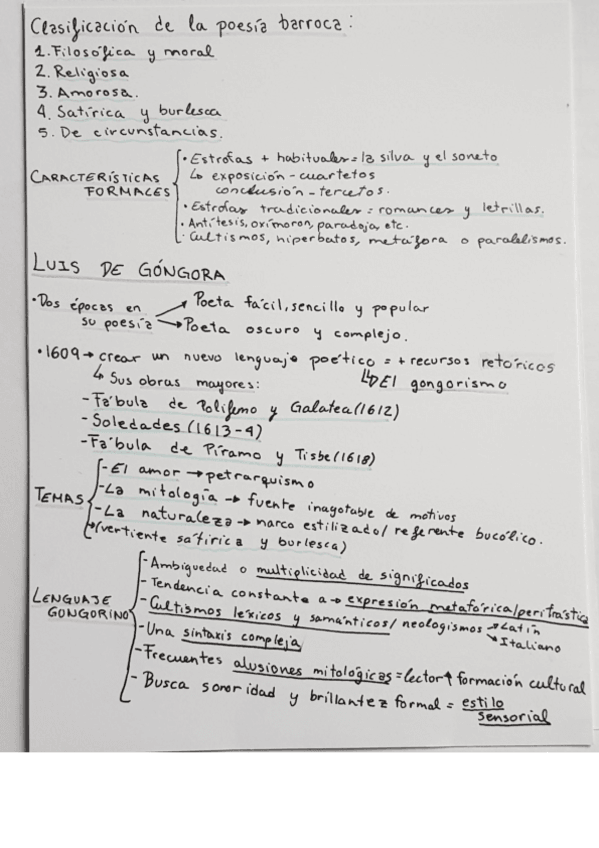 Clasificación de la poesía barroca:
1. Filosófica y moral
2. Religiosa
3. Amorosa.
4. Satírica y burlesca
5. De circunstancias.
CARACTERÍSTICAS FORMALES
• Estrofas + habituales = la silva y el soneto
↳ exposición - cuartetos
conclusión - tercetos.
• Estrofas tradicionales = romances y letrillas.
• Antítesis, oxímoron, paradoja, etc.
• Cultismos, hiperbatos, metáfora o paralelismos.
LUIS DE GÓNGORA
• Dos épocas en su poesía
→ Poeta fácil, sencillo y popular
→ Poeta oscuro y complejo.
• 1609 → crear un nuevo lenguaje poético = + recursos retóricos
↳ DEl gongorismo
↳ Sus obras mayores:
- Fábula de Polifemo y Galatea (1612)
- Soledades (1613-4)
- Fábula de Píramo y Tisbe (1618)
TEMAS
- El amor → petrarquismo
- La mitología → fuente inagotable de motivos
- La naturaleza → marco estilizado / referente bucólico.
→ (vertiente satírica y burlesca)
LENGUAJE GONGORINO
- Ambigüedad o multiplicidad de significados
- Tendencia constante a → expresión metafórica/perifrástica
- Cultismos léxicos y samánticos / neologismos → Latín
→ Italiano
- Una sintaxis compleja
- Frecuentes alusiones mitológicas = lector ↑ formación cultural
- Busca sonoridad y brillantez formal = estilo
sensorial